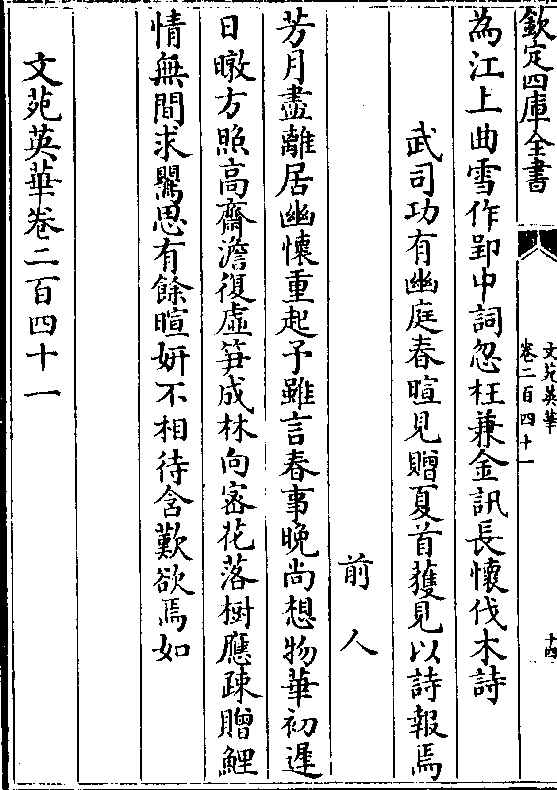 欽定四庫全書
文苑英華
卷二百四十一
十四
為江上曲雪作郢中詞忽枉兼金訊長懷伐木詩
武司功有幽庭春暄見贈夏首獲見以詩報焉
前人
芳月盡離居幽懷重起予雖言春事晚尚想物華初遲
日暾方照高齋澹復虛笋成林向宻花落樹應疎贈鯉
情無間求鸎思有餘暄妍不相待含歎欲焉如
文苑英華卷二百四十一